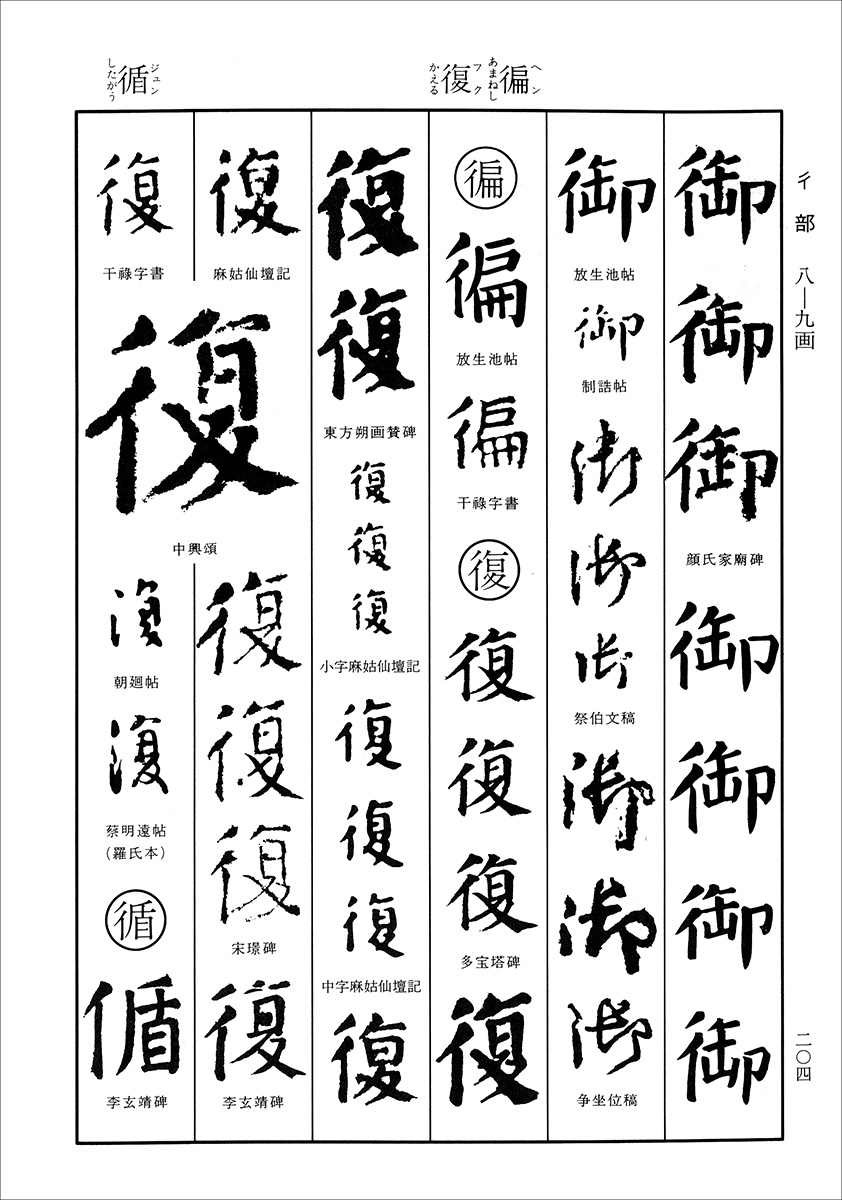 彳部 八―九画
二〇四
徧 ヘン あまねし
復 フク かえる
循 ジュン したがう
御
御
御
顔氏家廟碑
御
御
御
御
御
放生池帖
御
制誥帖
御
御
御
祭伯文稿
御
御
御
争坐位稿
徧
徧
放生池帖
徧
干祿字書
復
復
復
復
多宝塔碑
復
復
復
東方朔画賛碑
復
復
復
小字麻姑仙壇記
復
復
復
中字麻姑仙壇記
復
復
麻姑仙壇記
復
干祿字書
復
中興頌
復
復
復
宋璟碑
復
李玄靖碑
復
朝廻帖
復
蔡明遠帖
(羅氏本)
循
循
李玄靖碑